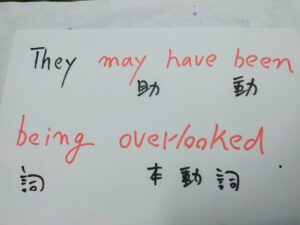 They may have been
助 動
being overlooked
詞 本動詞